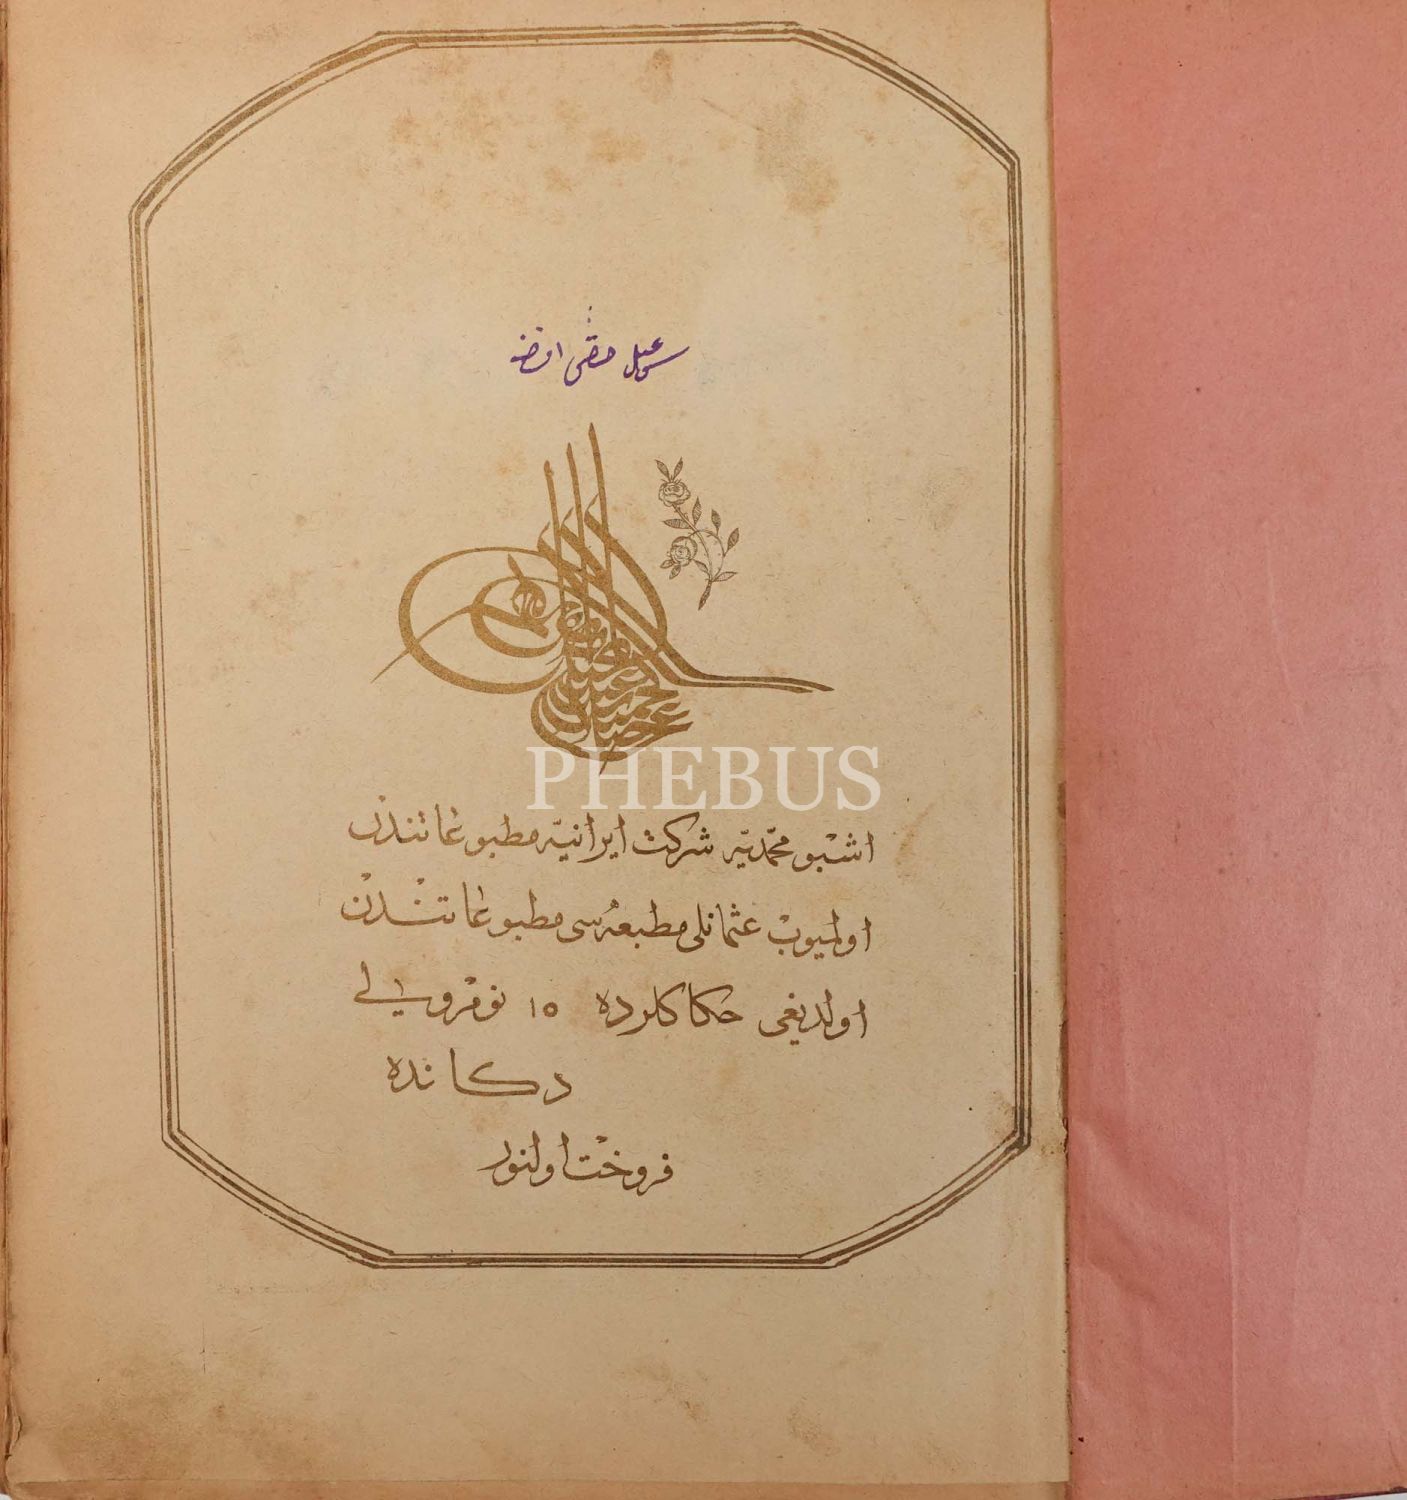 حقی
PHEBUS
اشبو محمّدیّه شركت ایرانیّه مطبوعاتندن
اولمیوب عثمانلی مطبعه‌سی مطبوعاتندن
اولدیغی حكاكلرده ١٥ نومرولی
دكانده
فروخت اولنور